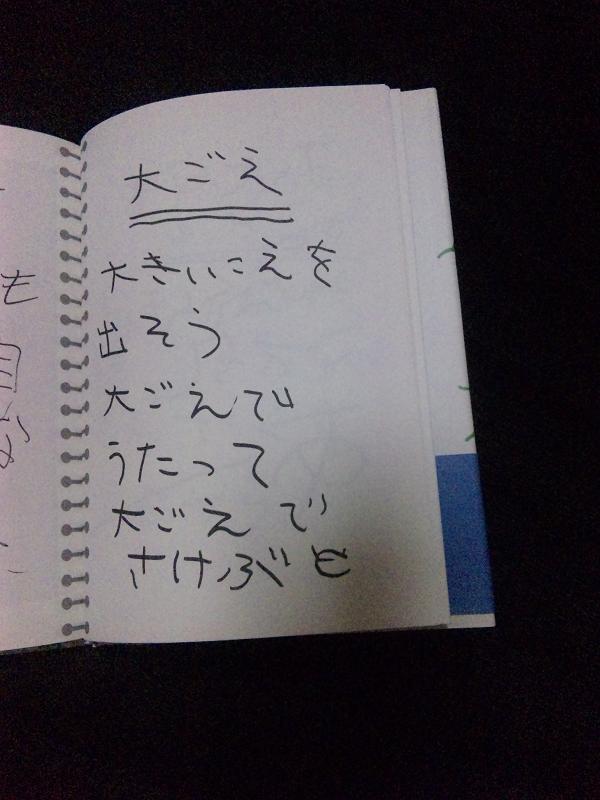 大ごえ
大きいこえを
出そう
大ごえで
うたって
大ごえで
さけぶと